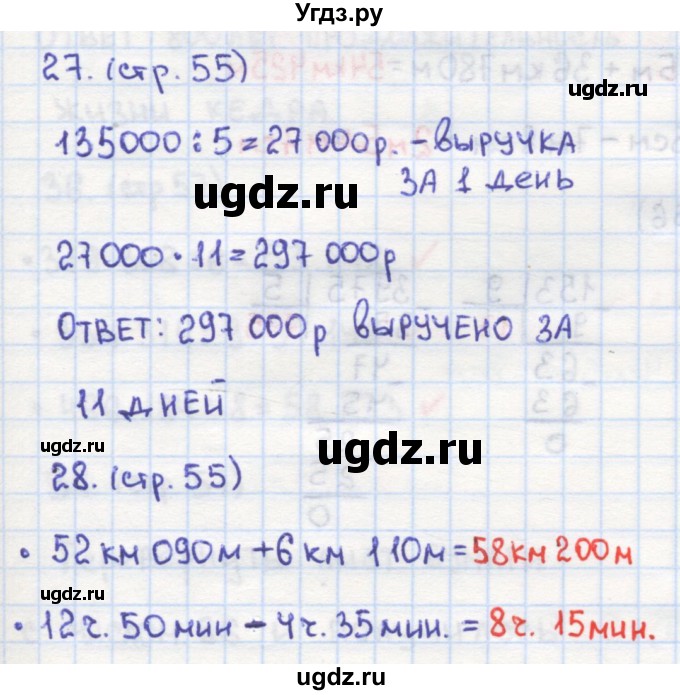 Угдз.ру
27. (стр. 55)
ugdz.ru
135000 : 5 = 27 000р. - выручка
за 1 день
ugdz.ru
27000 · 11 = 297 000р
Ответ: 297 000р выручено за
11 дней
ugdz.ru
ugdz.ru
ugdz.ru
28. (стр. 55)
• 52 км 090м + 6 км 110м = 58км 200м
ugdz.ru
ugdz.ru
• 12 ч. 50 мин - 4 ч. 35 мин. = 8 ч. 15 мин.
ugdz.ru